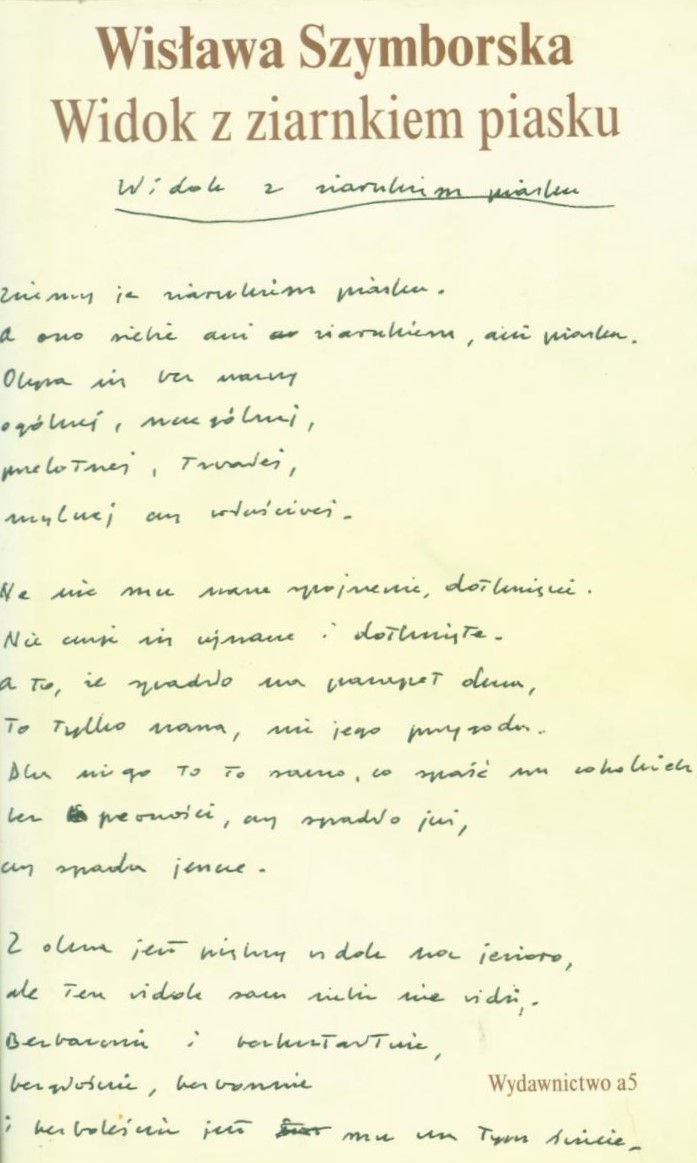 Wisława Szymborska
Widok z ziarnkiem piasku
Widok z ziarnkiem piasku
Zwiemy je ziarnkiem piasku.
A ono siebie ani ziarnkiem, ani piasku.
Obywa się bez nazwy
ogólnej, szczególnej,
przelotnej, trwałej,
mylnej czy właściwej.
Na nic mu nasze spojrzenie, dotknięcie.
Nie czuje się ujrzane i dotknięte.
A to, że spadło na parapet okna,
to tylko nasza, nie jego przygoda.
Dla niego to to samo, co spaść na cokolwiek
bez pewności, czy spadło już,
czy spada jeszcze.
Z okna jest piękny widok na jezioro,
ale ten widok sam siebie nie widzi.
Bezbarwnie i bezkształtnie,
bezgłośnie, bezwonnie
Wydawnictwo a5
i bezboleśnie jest mu na tym świecie.